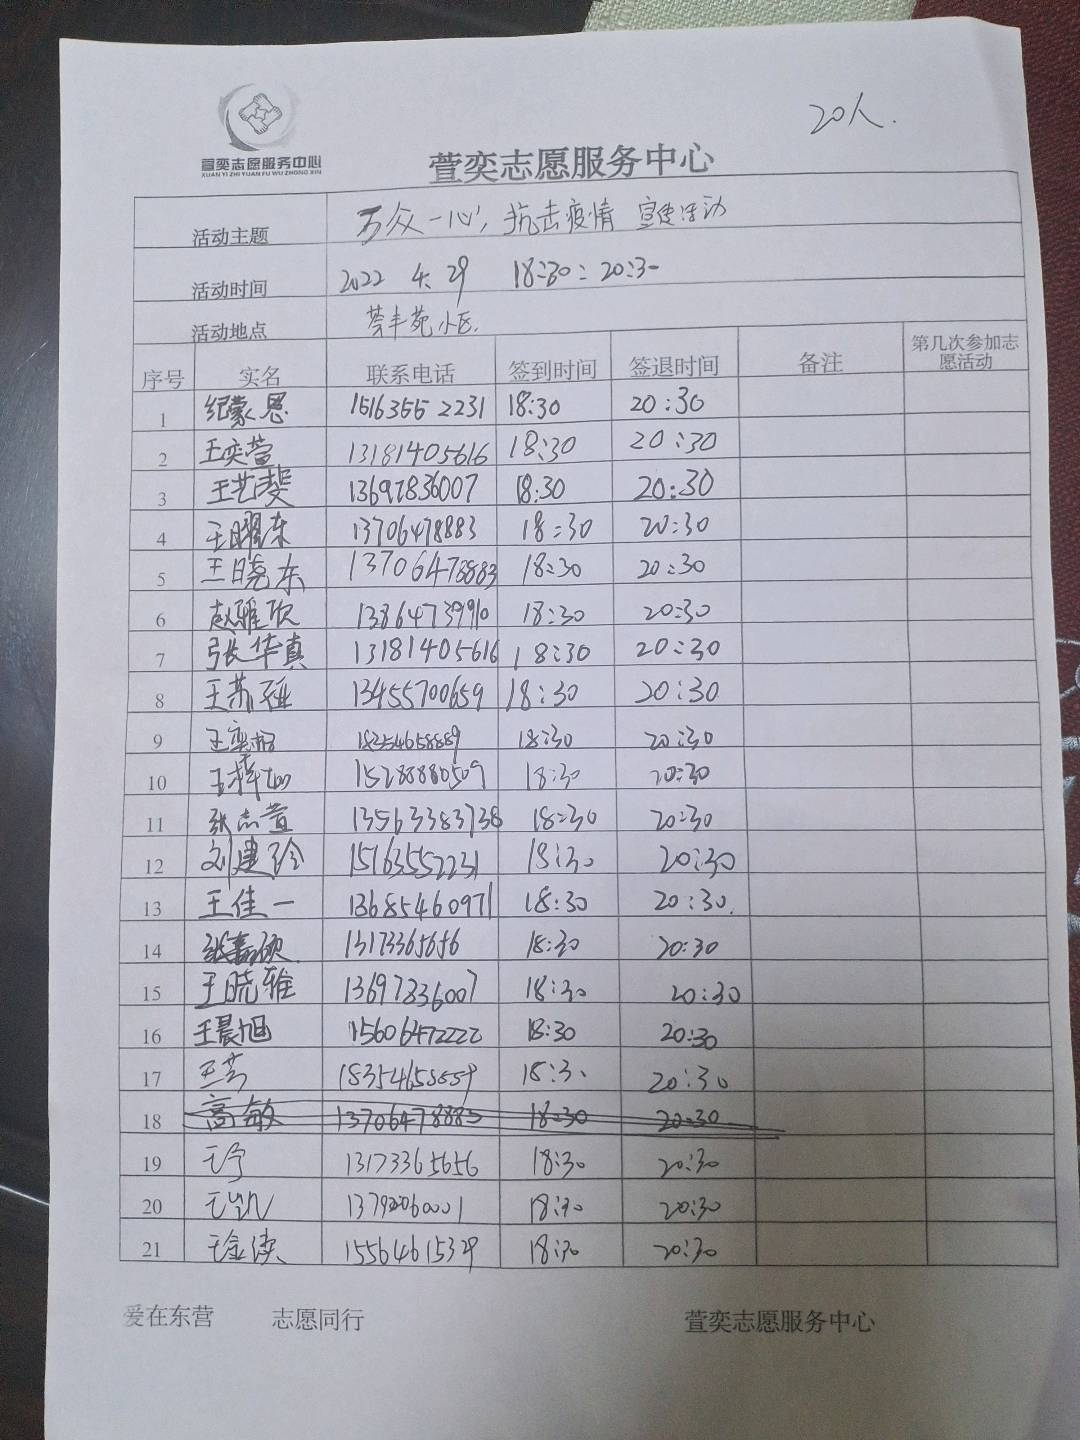 20人.
萱奕志愿服务中心
XUAN YI ZHI YUAN FU WU ZHONG XIN
萱奕志愿服务中心
活动主题 万众一心，抗击疫情 宣传活动
活动时间 2022 4. 29 18:30:20:30
活动地点 苑小区.
序号 实名 联系电话 签到时间 签退时间 备注 第几次参加志愿活动
1 纪蒙恩 15163552231 18:30 20:30
2 王奕萱 13181405616 18:30 20:30
3 王艺斐 13697836007 18:30 20:30
4 王曜东 13706478883 18:30 20:30
5 王晓东 13706478883 18:30 20:30
6 赵雅欣 13864739910 18:30 20:30
7 张华真 13181405616 18:30 20:30
8 王 13455700659 18:30 20:30
9 王奕 18354658889 18:30 20:30
10 王 15288880509 18:30 20:30
11 张志萱 13563383738 18:30 20:30
12 刘建玲 15163552231 18:30 20:30
13 王佳一 13685460971 18:30 20:30.
14 张嘉硕 13173365656 18:30 20:30
15 王晓雅 13697836007 18:30 20:30
16 王晨旭 15606472222 18:30 20:30
17 王芳 18354658889 18:30 20:30
18 高敏 13706478883 18:30 20:30
19 王宁 13173365656 18:30 20:30
20 王凯 18:30 20:30
21 王金续 15564615329 18:30 20:30
爱在东营 志愿同行 萱奕志愿服务中心